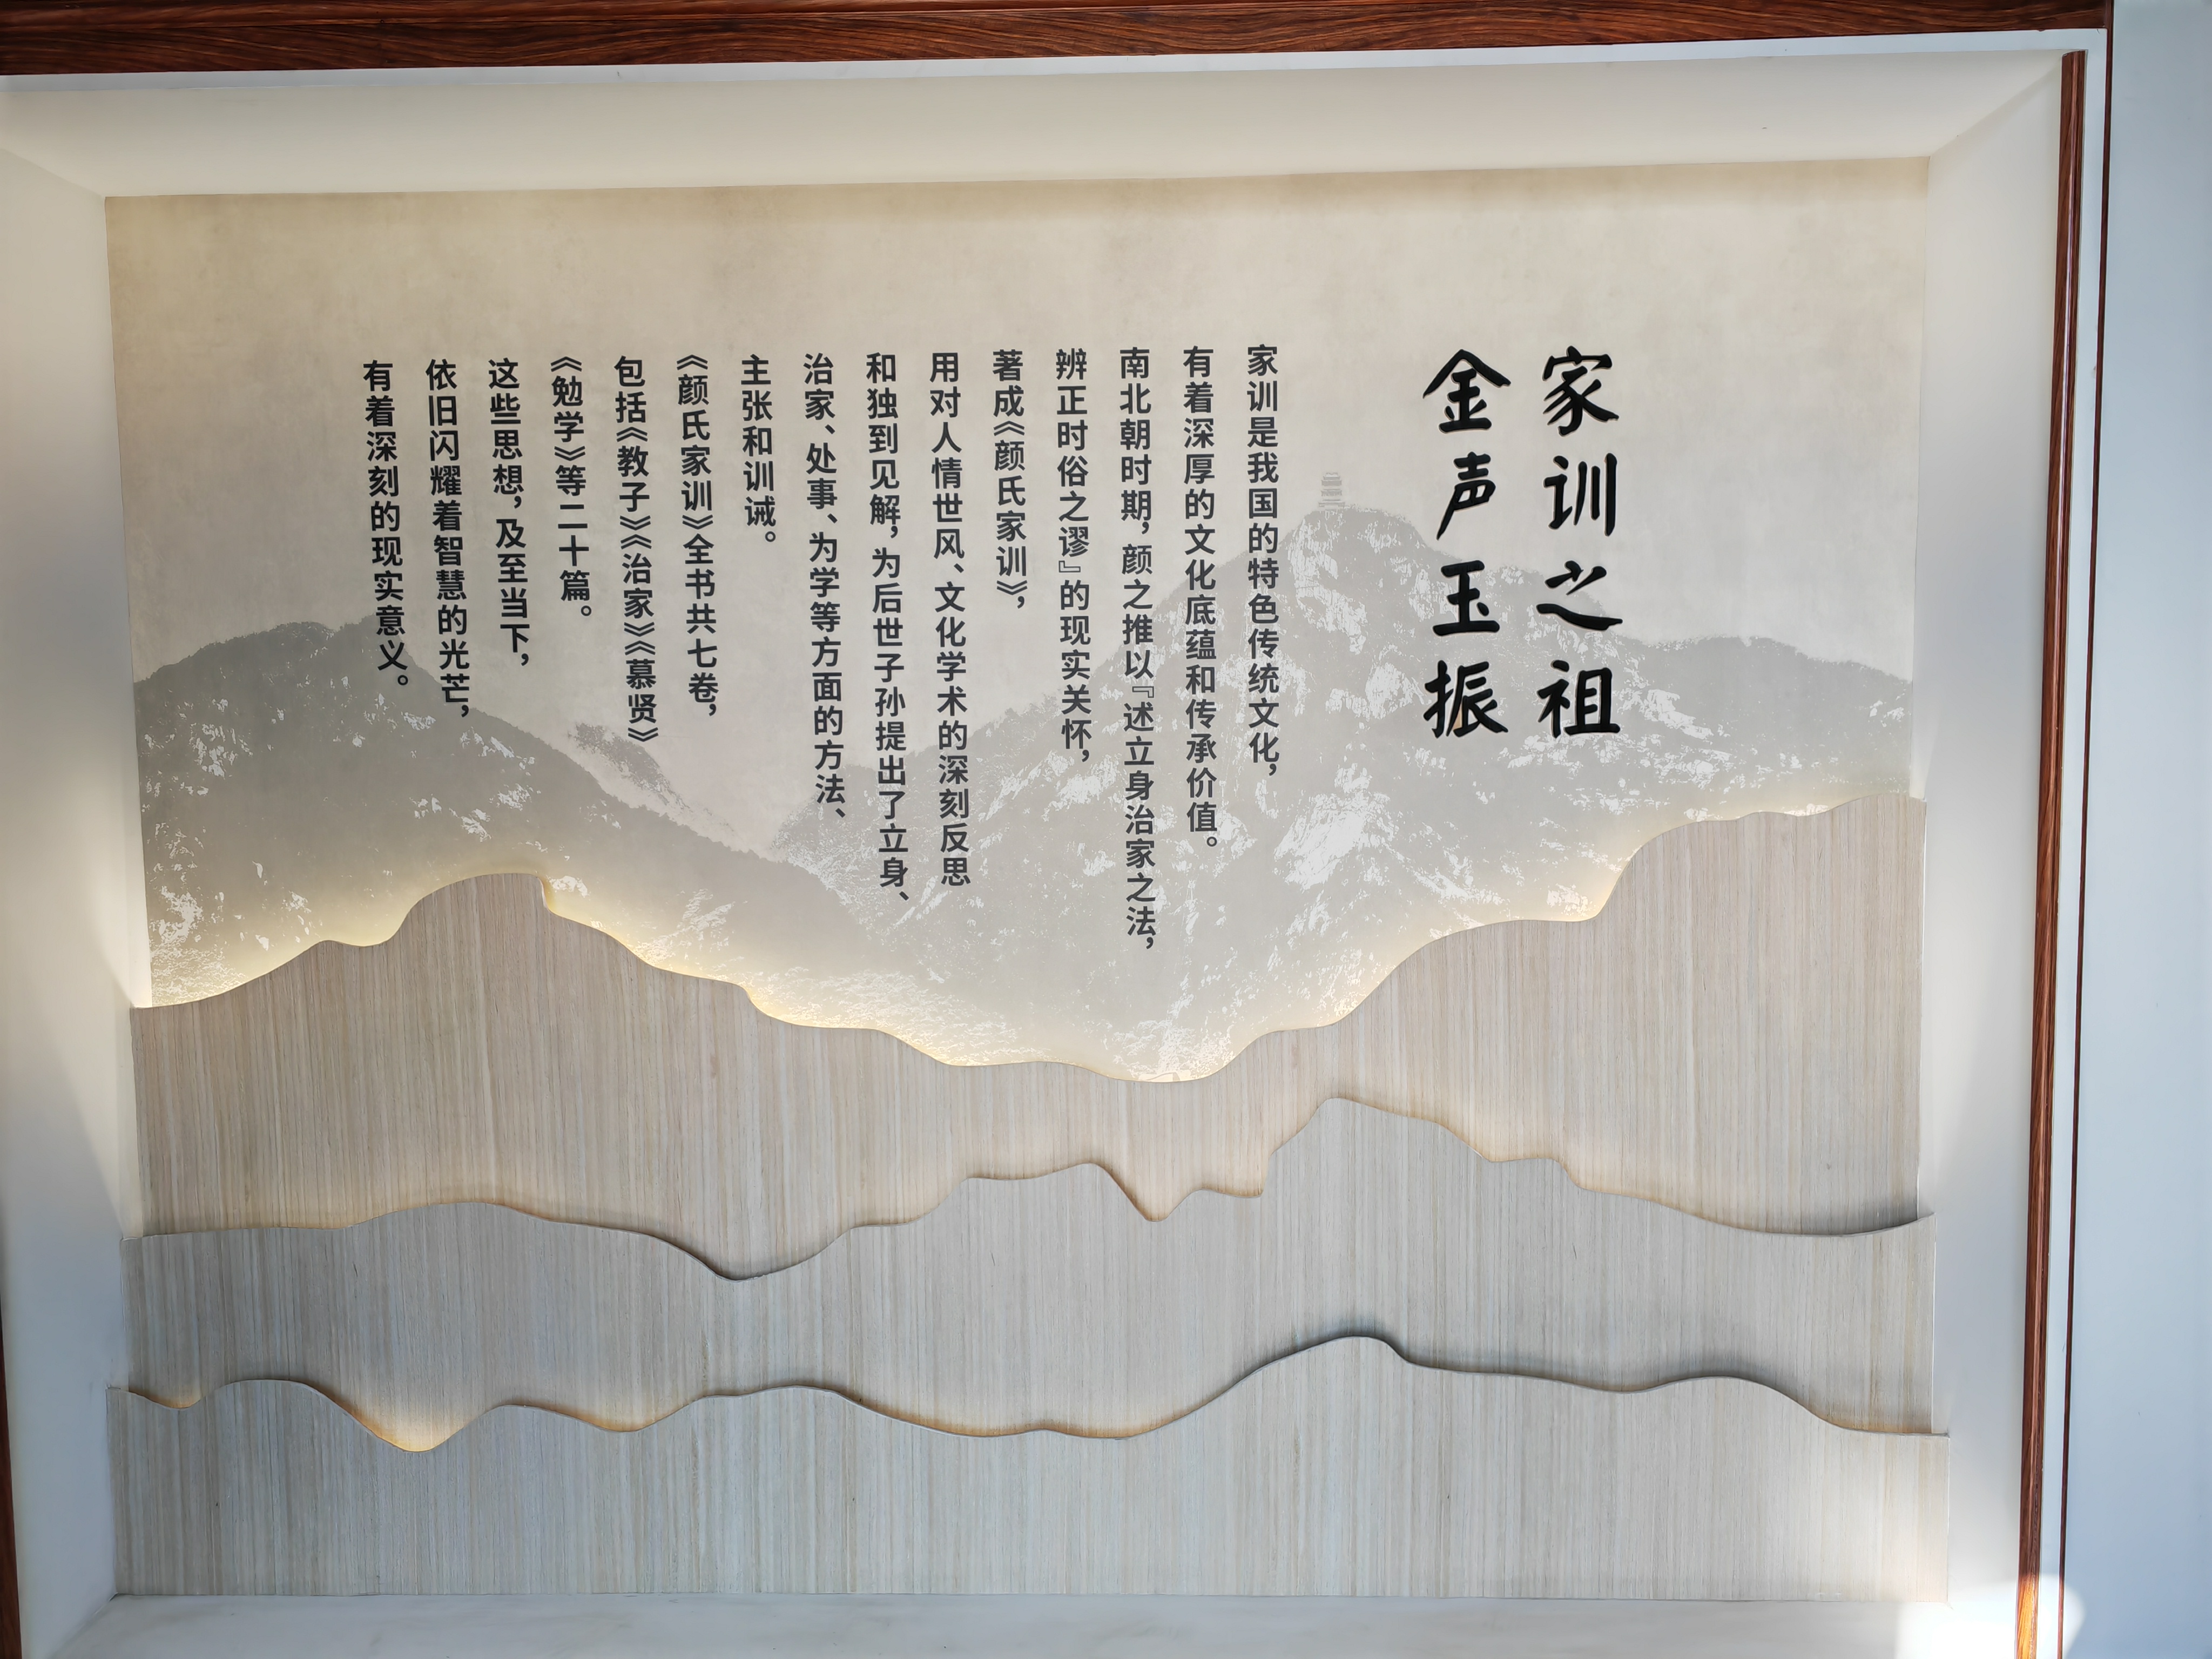 家训之祖
金声玉振
家训是我国的特色传统文化，
有着深厚的文化底蕴和传承价值。
南北朝时期，颜之推以『述立身治家之法，
辨正时俗之谬』的现实关怀，
著成《颜氏家训》，
用对人情世风、文化学术的深刻反思
和独到见解，为后世子孙提出了立身、
治家、处事、为学等方面的方法、
主张和训诫。
《颜氏家训》全书共七卷，
包括《教子》《治家》《慕贤》
《勉学》等二十篇。
这些思想，及至当下，
依旧闪耀着智慧的光芒，
有着深刻的现实意义。